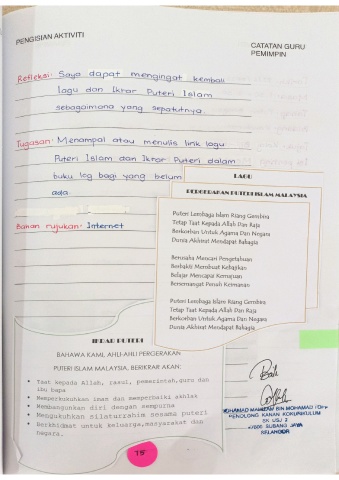 PENGISIAN AKTIVITI
CATATAN GURU
PEMIMPIN
Refleksi: Saya dapat mengingat kembali
lagu dan Ikrar Puteri Islam
sebagaimana yang sepatutnya.
Tugasan: Menampal atau menulis link lagu
Puteri Islam dan Ikrar Puteri dalam
buku log bagi yang belum
ada.
Bahan rujukan: Internet
LAGU
PERGERAKAN PUTERI ISLAM MALAYSIA
Puteri Lembaga Islam Riang Gembira
Tetap Taat Kepada Allah Dan Raja
Berkorban Untuk Agama Dan Negara
Dunia Akhirat Mendapat Bahagia
Berusaha Mencari Pengetahuan
Berbakti Membuat Kebajikan
Belajar Mencapai Kemajuan
Bersemangat Penuh Keimanan
Puteri Lembaga Islam Riang Gembira
Tetap Taat Kepada Allah Dan Raja
Berkorban Untuk Agama Dan Negara
Dunia Akhirat Mendapat Bahagia
IKRAR PUTERI
BAHAWA KAMI, AHLI-AHLI PERGERAKAN
PUTERI ISLAM MALAYSIA, BERIKRAR AKAN:
• Taat Kepada Allah, rasul, pemerintah, guru dan
ibu bapa
• Memperkukuhkan iman dan memperbaiki akhlak
• Membangunkan diri dengan sempurna
• Mengukuhkan silaturrahim sesama puteri
• Berkhidmat untuk keluarga, masyarakat dan
negara.
Baik
BIN MOHAMAD
PENOLONG KANAN KOKURIKULUM
SK USJ 2
SUBANG JAYA
SELANGOR
15